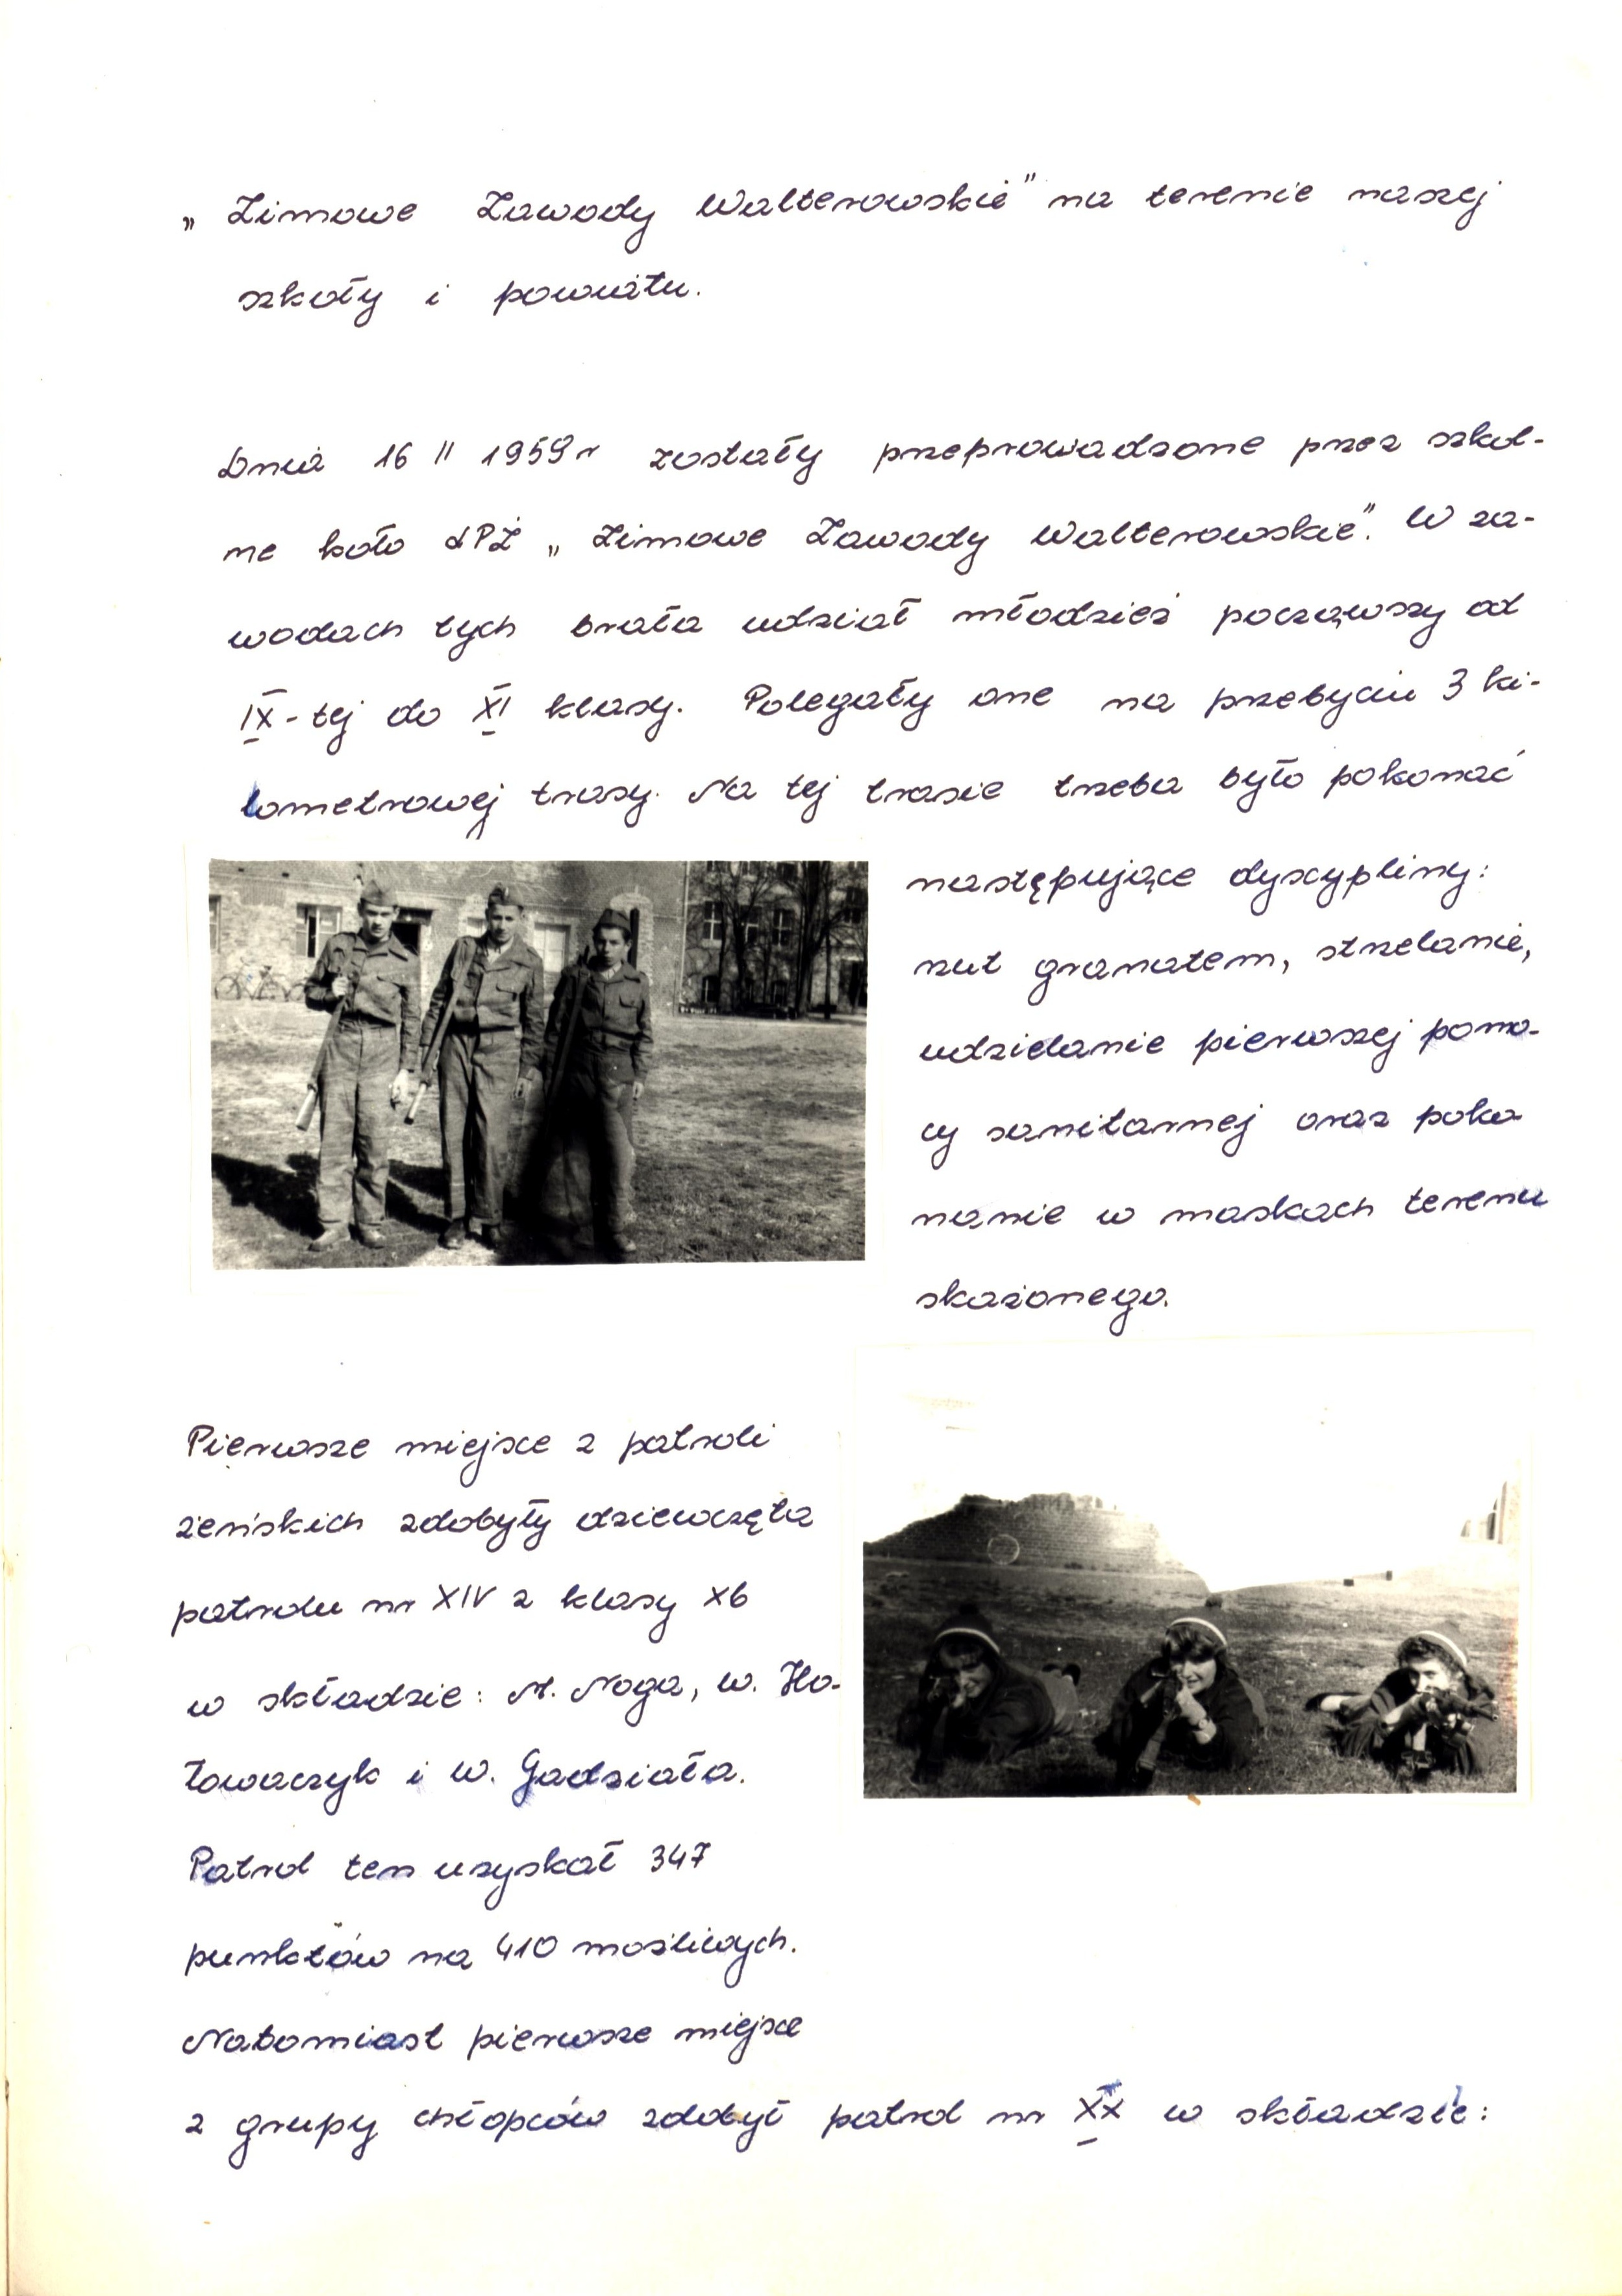 „Zimowe Zawody Walterowskie" na terenie naszej
szkoły i powiatu.
Dnia 16 II 1959 r zostały przeprowadzone przez szkol-
ne koło LPŻ „Zimowe Zawody Walterowskie". W za-
wodach tych brała udział młodzież począwszy od
IX-tej do XI klasy. Polegały one na przebyciu 3 ki-
lometrowej trasy. Na tej trasie trzeba było pokonać
następujące dyscypliny:
rzut granatem, strzelanie,
udzielanie pierwszej pomo-
cy sanitarnej oraz poko
nanie w maskach terenu
skażonego.
Pierwsze miejsce z patroli
żeńskich zdobyły dziewczęta
patrolu nr XIV z klasy Xb
w składzie: M. Noga, W. Ho-
łowaczyk i W. Gadziała.
Patrol ten uzyskał 347
punktów na 410 możliwych.
Natomiast pierwsze miejsce
z grupy chłopców zdobył patrol nr XX w składzie: